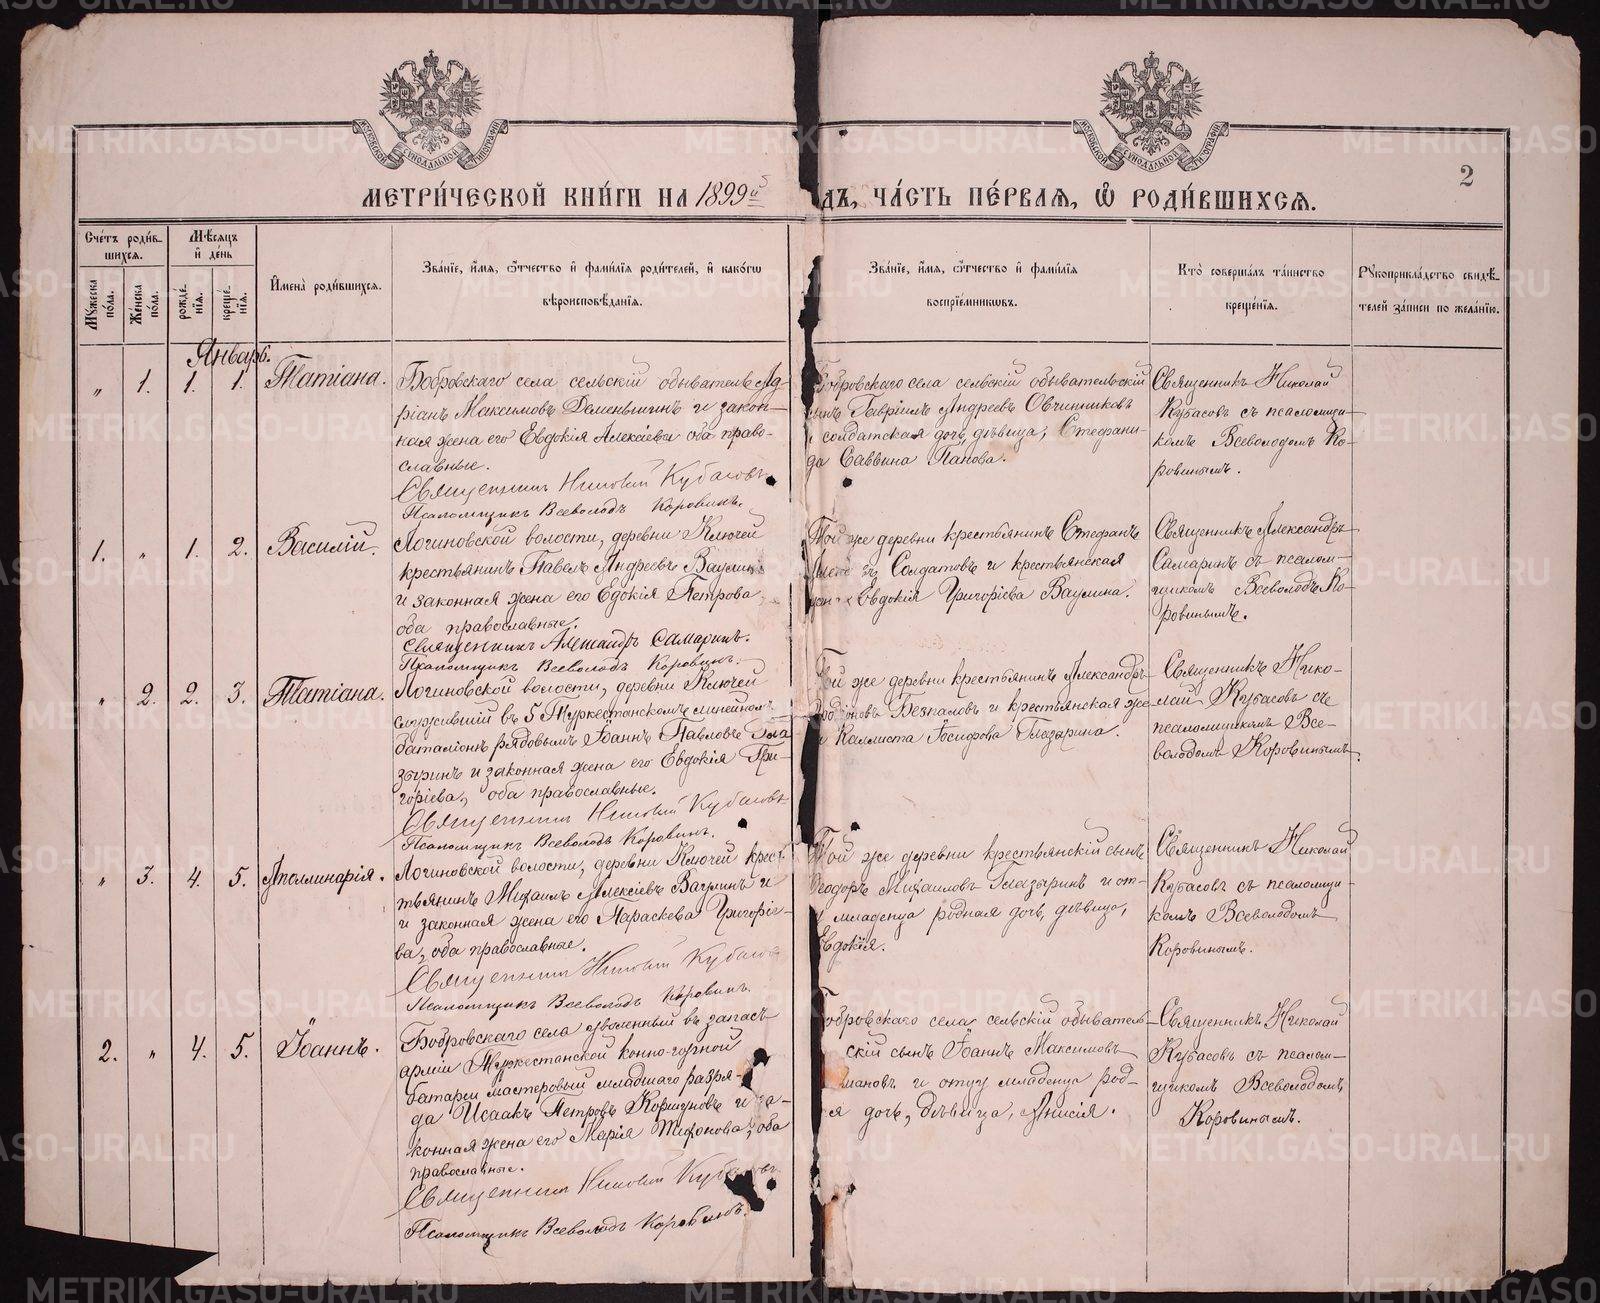 МЕТРИ́ЧЕСКОЙ КНИ́ГИ НА 1899й
ДЪ, ЧА́СТЬ ПЕ́РВАЯ, Ѡ РОДИ́ВШИХСЯ.
2
Сче́тъ роди́в-
шихся.
Мѣ́сяцъ
и де́нь
Му́жеска
по́ла.
Же́нска
по́ла.
рожде́-
нїя.
креще́-
нїя.
Имена̀ роди́вшихся.
Зва́нїе, и́мя, ѻ́тчество и фами́лїя роди́телей, и како́гѡ
вѣроисповѣ́данїя.
Зва́нїе, и́мя, ѻ́тчество и фами́лїя
воспрїе́мниковъ.
Кто̀ соверша́лъ та́инство
креще́нїя.
Рꙋкоприкла́дство свидѣ́-
телей за́писи по жела́нїю.
Январь.
" 1. 1. 1. Татіана.
Бобровскаго села сельскій обыватель Ад-
ріанъ Максимовъ Деменьшинъ и закон-
ная жена его Евдокія Алексіева оба право-
славные.
Священникъ Николай Кубасовъ
Псаломщикъ Всеволодъ Коровинъ.
Бобровскаго села сельскій обывательскій
сынъ Гавріилъ Андреевъ Овчинниковъ
и солдатская дочь, дѣвица, Стефани-
да Саввина Панова.
Священникъ Николай
Кубасовъ съ псаломщи-
комъ Всеволодомъ Ко-
ровинымъ.
1. " 1. 2. Василій.
Логиновской волости, деревни Ключей
крестьянинъ Павелъ Андреевъ Ваулинъ
и законная жена его Евдокія Петрова
оба православные.
Священникъ Александръ Самаринъ.
Псаломщикъ Всеволодъ Коровинъ.
Той же деревни крестьянинъ Стефанъ
Солдатовъ и крестьянская
Евдокія Григоріева Ваулина.
Священникъ Александръ
Самаринъ съ псалом-
щикомъ Всеволодъ Ко-
ровинымъ.
" 2. 2. 3. Татіана.
Логиновской волости, деревни Ключей
служившій въ 5 Туркестанскомъ линейномъ
баталіонѣ рядовымъ Іоаннъ Павловъ Гла
зыринъ и законная жена его Евдокія Гри-
горіева, оба православные.
Священникъ Николай Кубасовъ
Псаломщикъ Всеволодъ Коровинъ.
Той же деревни крестьянинъ Александръ
Родіоновъ Безпаловъ и крестьянская же
Каллиста Іосифова Глазырина.
Священникъ Нико-
лай Кубасовъ съ
псаломщикомъ Все-
володомъ Коровинымъ.
" 3. 4. 5. Аполлинарія.
Логиновской волости, деревни Ключей крес-
тьянинъ Михаилъ Алексіевъ Ваулинъ и
и законная жена его Параскева Григоріе-
ва, оба православные.
Священникъ Николай Кубасовъ
Псаломщикъ Всеволодъ Коровинъ.
Той же деревни крестьянскій сынъ
Ѳеодоръ Михаиловъ Глазыринъ и от-
младенца родная дочь, дѣвица,
Евдокія.
Священникъ Николай
Кубасовъ съ псаломщи-
комъ Всеволодомъ
Коровинымъ.
2. " 4. 5. Іоаннъ.
Бобровскаго села уволенный въ запасъ
арміи Туркестанской конно-горной
батареи мастеровый младшаго разря-
да Исаакъ Петровъ Коршуновъ и за-
конная жена его Марія Тихонова, оба
православные.
Священникъ Николай Кубасовъ
Псаломщикъ Всеволодъ Коровинъ.
Бобровскаго села сельскій обыватель-
скій сынъ Іоаннъ Максимовъ
мановъ и отцу младенца род-
ая дочь, дѣвица, Анисія.
Священникъ Николай
Кубасовъ съ псалом-
щикомъ Всеволодомъ
Коровинымъ.
METRIKI.GASO-URAL.RU